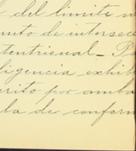 del limite n
unto de intersecc
tentrional. - P
ligencia exhib
crito por amba
la de conform